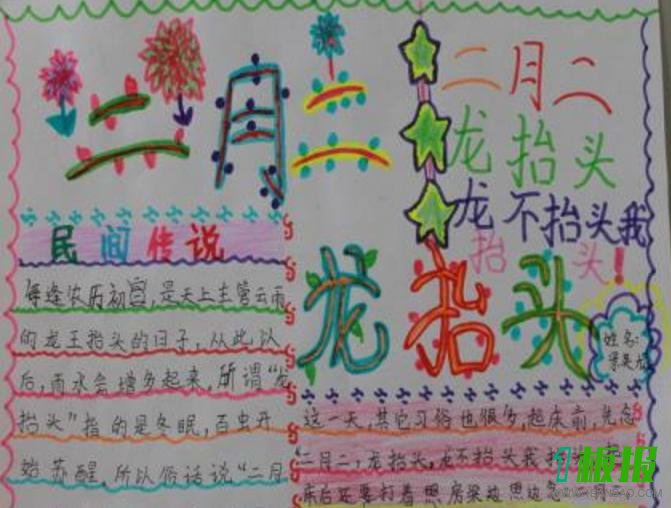 二月二
龙抬头
二月二
龙抬头
龙不抬头我
抬头!
民间传说
每逢农历初，是天上主管云雨
的龙王抬头的日子，从此以
后，雨水会增多起来，所谓“龙
抬头”指的是冬眠，百虫开
始苏醒，所以俗话说“二月
姓名:
这一天，其它习俗也很多，起床前，先念
“二月二，龙抬头，龙不抬头我抬头”起
床后还要打着照房梁边照边念
板报